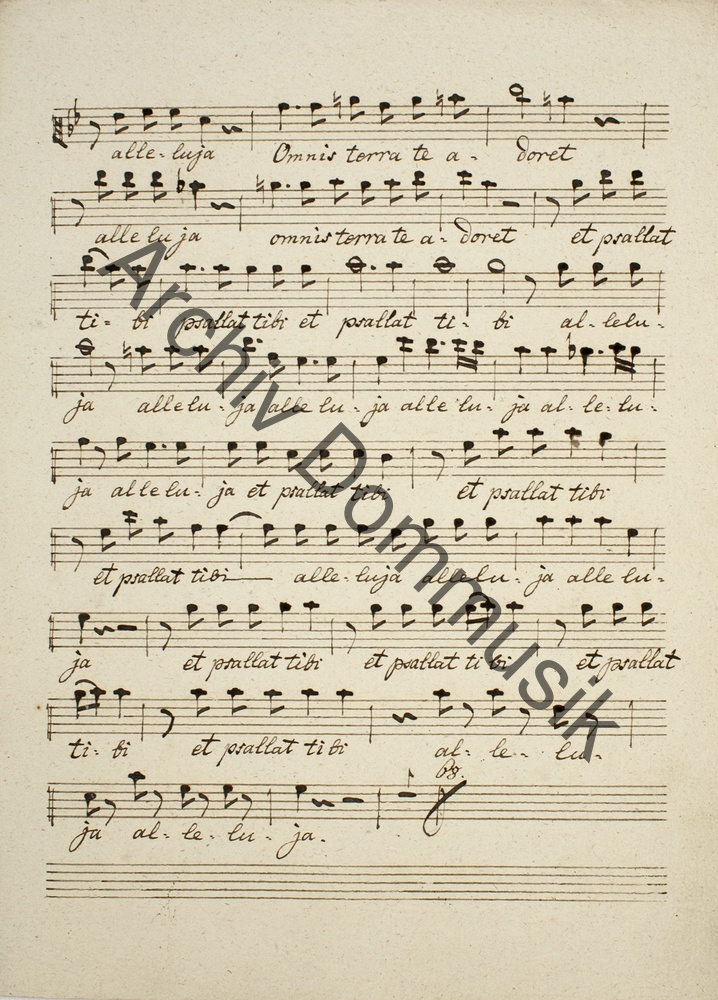 alle-luja Omnis terra te a- doret
alle lu ja omnis terra te a- doret et psallat
ti- bi psallat tibi et psallat ti- bi al-lelu-
ja allelu- ja alle lu- ja alle lu- ja al-le-lu-
ja allelu- ja et psallat tibi et psallat tibi
et psallat tibi alle-luja allelu- ja alle lu-
ja et psallat tibi et psallat ti bi et psallat
ti- bi et psallat tibi al- le- lu-
68.
ja al- le- lu- ja.
Archiv Dommusik